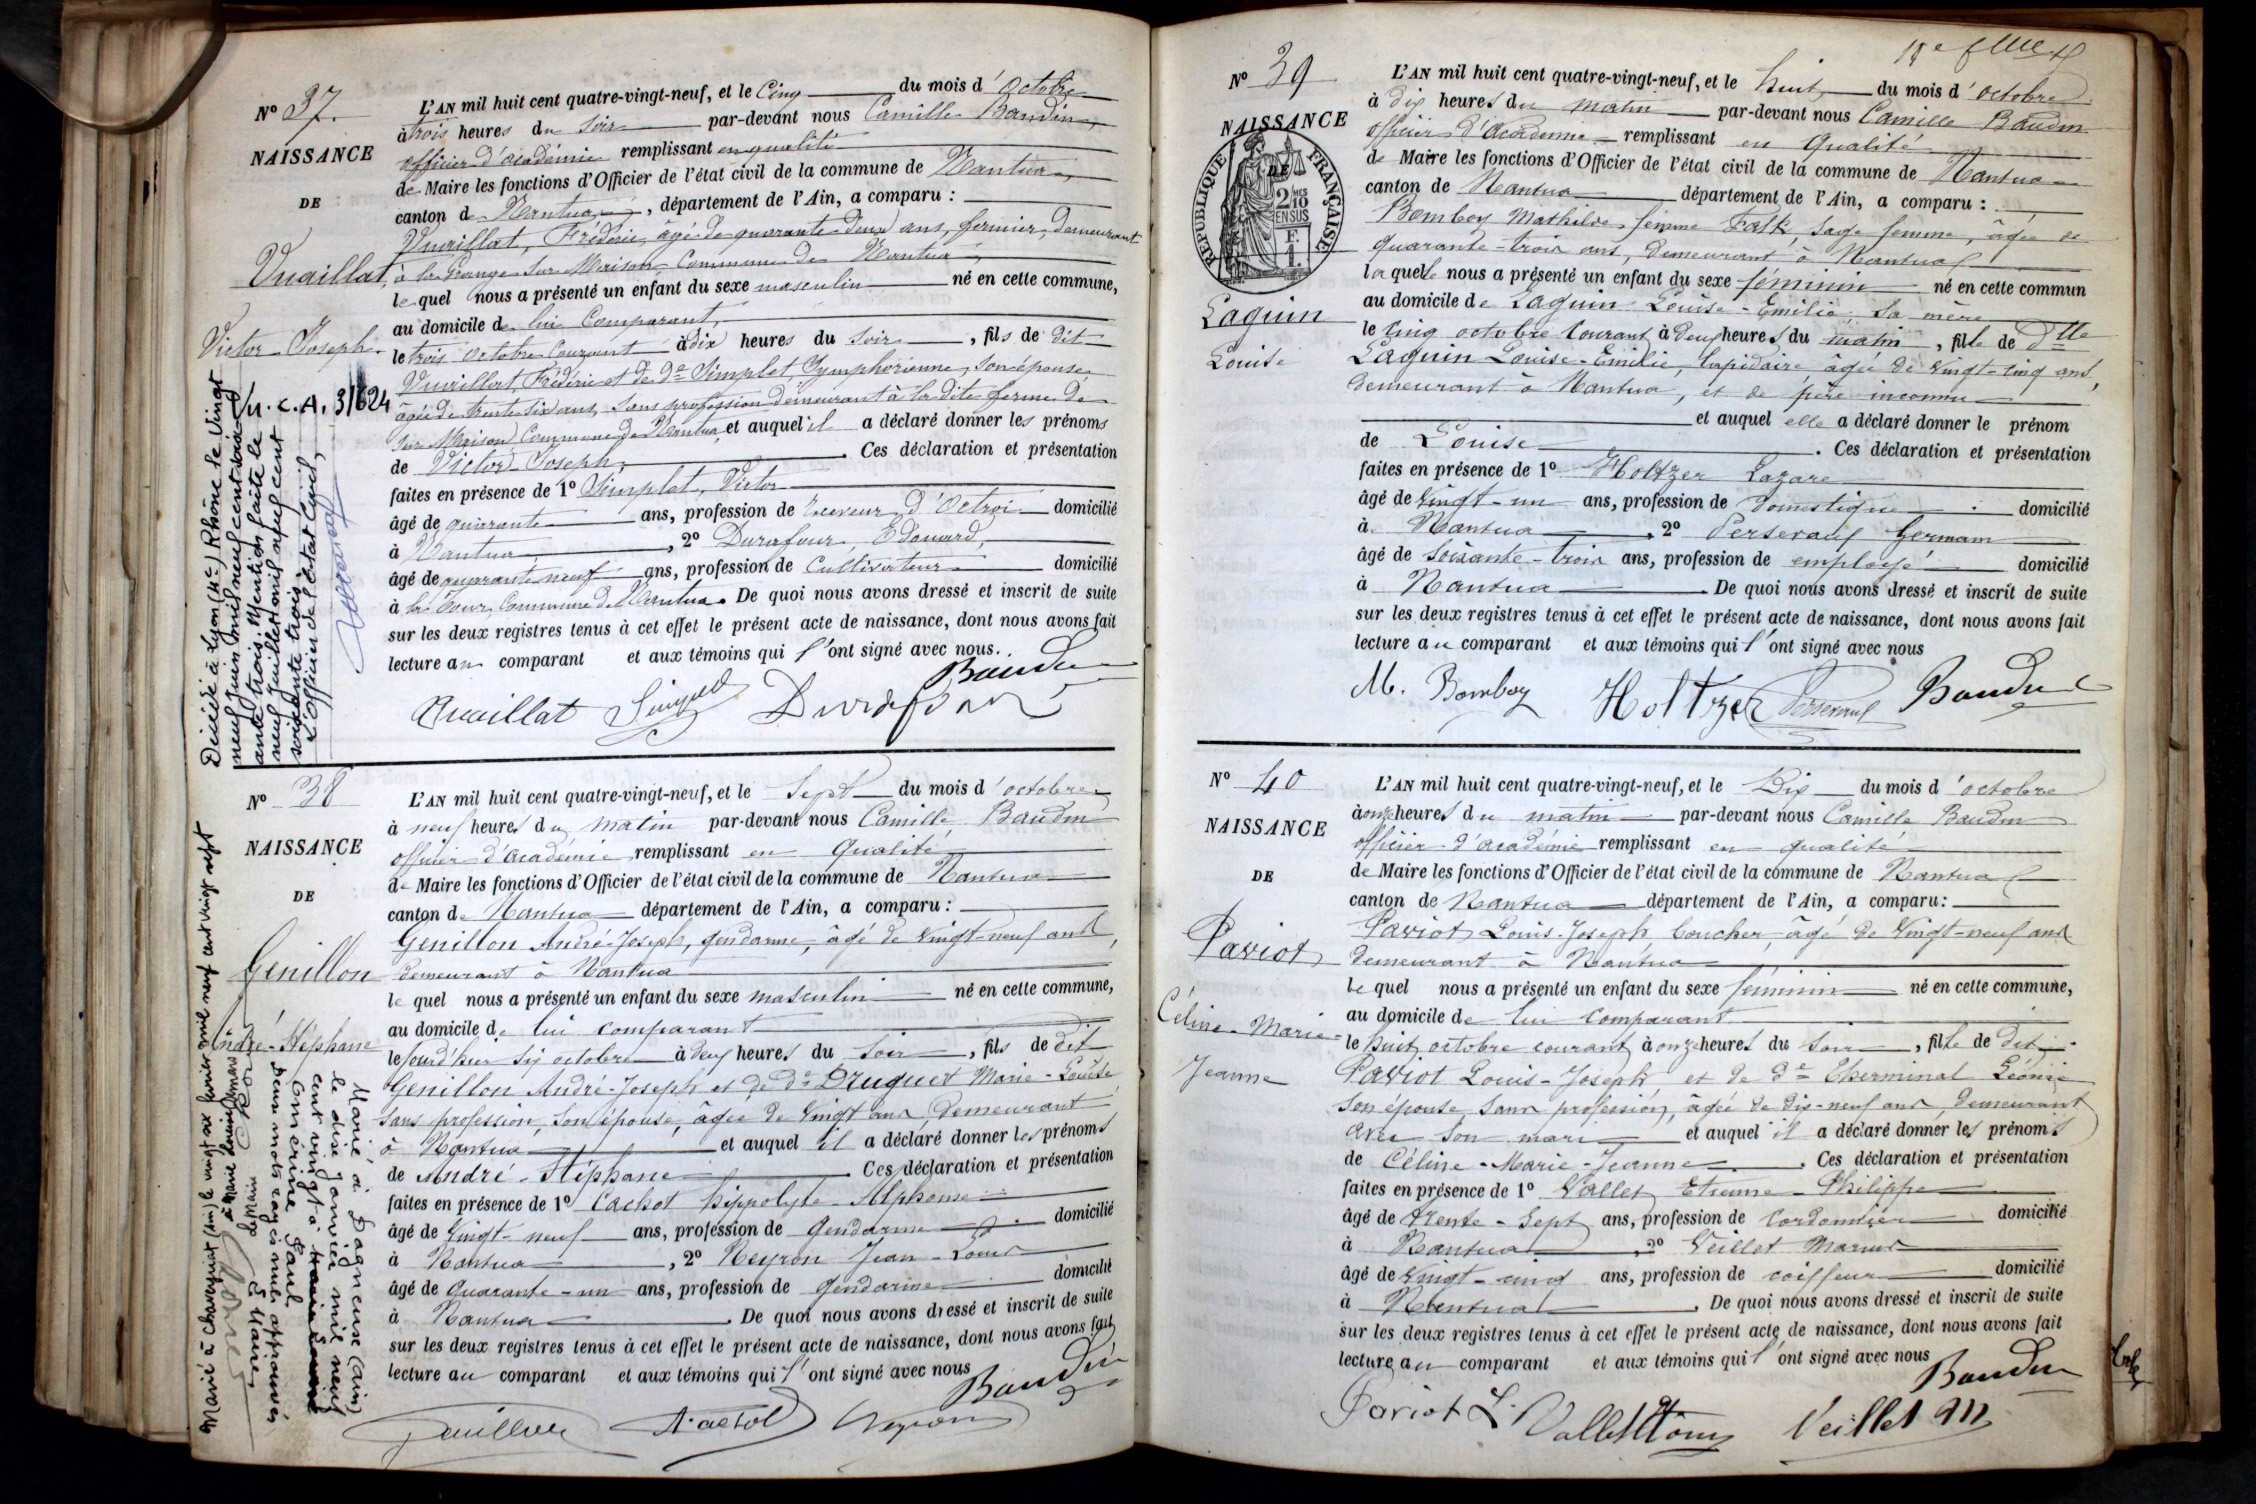 N° 37.
NAISSANCE
DE
Vuaillat,
Victor-Joseph.
L'AN mil huit cent quatre-vingt-neuf, et le Cinq du mois d'octobre
à trois heures du soir par-devant nous Camille Baudin,
officier d'académie remplissant en qualité
de Maire les fonctions d'Officier de l'état civil de la commune de Nantua,
canton de Nantua, département de l'Ain, a comparu :
Vuaillat, Frédéric, âgé de quarante-deux ans, fermier, demeurant
à la Grange sur Maison, Commune de Nantua,
lequel nous a présenté un enfant du sexe masculin né en cette commune,
au domicile de lui Comparant,
le trois octobre Courant à dix heures du soir, fils de dit
Vuaillat, Frédéric et de de Simplet, Symphorienne, son épouse
âgée de trente six ans, sans profession demeurant à la dite ferme de
sur Maison, Commune de Nantua, et auquel il a déclaré donner les prénoms
de Victor-Joseph. Ces déclaration et présentation
faites en présence de 1° Simplet, Victor
âgé de quarante ans, profession de Receveur d'Octroi domicilié
à Nantua, 2° Durafour, Edouard,
âgé de quarante neuf ans, profession de Cultivateur domicilié
à la Cour, Commune de Nantua. De quoi nous avons dressé et inscrit de suite
sur les deux registres tenus à cet effet le présent acte de naissance, dont nous avons fait
lecture au comparant et aux témoins qui l'ont signé avec nous.
Baudin
Vuaillat Simplet Durafour
Décédé à Lyon (4e) Rhône le Vingt
neuf Juin mil neuf cent soix
ante trois. Mention faite le
neuf Juillet mil neuf cent
soixante trois.
L'officier de l'état Civil,
N° 38
NAISSANCE
DE
Genillon
André-Stéphane
L'AN mil huit cent quatre-vingt-neuf, et le Sept du mois d'octobre
à neuf heures du matin par-devant nous Camille Baudin
officier d'académie remplissant en qualité
de Maire les fonctions d'Officier de l'état civil de la commune de Nantua
canton de Nantua département de l'Ain, a comparu :
Genillon André-Joseph, gendarme, âgé de vingt-neuf ans,
demeurant à Nantua
lequel nous a présenté un enfant du sexe masculin né en cette commune,
au domicile de lui comparant
le jourd'hier six octobre à deux heures du soir, fils de dit
Genillon André-Joseph et de de Druguet Marie-Louise
sans profession, son épouse, âgée de vingt ans, demeurant
à Nantua et auquel il a déclaré donner les prénoms
de André-Stéphane. Ces déclaration et présentation
faites en présence de 1° Cachot hippolyte-Alphonse
âgé de vingt-neuf ans, profession de gendarme domicilié
à Nantua, 2° Neyron Jean-Louis
âgé de quarante-un ans, profession de gendarme domicilié
à Nantua. De quoi nous avons dressé et inscrit de suite
sur les deux registres tenus à cet effet le présent acte de naissance, dont nous avons fait
lecture au comparant et aux témoins qui l'ont signé avec nous
Baudin
Genillon Cachot Neyron
Marié à Dagneux (Ain)
le dix Janvier mil neuf
cent vingt à
Deux mots rayés nuls approuvés
Le Maire,
N° 39
NAISSANCE
DE
REPUBLIQUE FRANÇAISE
Laquin
Louise
L'AN mil huit cent quatre-vingt-neuf, et le huit du mois d'octobre
à dix heures du matin par-devant nous Camille Baudin
officier d'académie remplissant en qualité
de Maire les fonctions d'Officier de l'état civil de la commune de Nantua
canton de Nantua département de l'Ain, a comparu :
Bomboy Mathilde femme Falk, sage femme, âgée de
quarante-trois ans, demeurant à Nantua
laquelle nous a présenté un enfant du sexe féminin né en cette commun
au domicile de Laquin Louise-Emilie, sa mère
le cinq octobre courant à deux heures du matin, fille de Dlle
Laquin Louise-Emilie, lapidaire âgée de vingt-cinq ans,
demeurant à Nantua, et de père inconnu
et auquel elle a déclaré donner le prénom
de Louise. Ces déclaration et présentation
faites en présence de 1° Holtzer Lazare
âgé de vingt-un ans, profession de domestique domicilié
à Nantua, 2° Perseraul Germain
âgé de soixante-trois ans, profession de employé domicilié
à Nantua. De quoi nous avons dressé et inscrit de suite
sur les deux registres tenus à cet effet le présent acte de naissance, dont nous avons fait
lecture au comparant et aux témoins qui l'ont signé avec nous
M. Bomboy Holtzer Perseraul Baudin
N° 40
NAISSANCE
DE
Paviot
Céline-Marie-
Jeanne
L'AN mil huit cent quatre-vingt-neuf, et le Dix du mois d'octobre
à onze heures du matin par-devant nous Camille Baudin
officier d'académie remplissant en qualité
de Maire les fonctions d'Officier de l'état civil de la commune de Nantua
canton de Nantua département de l'Ain, a comparu :
Paviot Louis-Joseph Coucher, âgé de vingt-neuf ans
demeurant à Nantua
lequel nous a présenté un enfant du sexe féminin né en cette commune,
au domicile de lui comparant
le huit octobre courant à onze heures du soir, fille de dit
Paviot Louis-Joseph et de de Cherminal Léonie
son épouse sans profession, âgée de dix-neuf ans, demeurant
avec son mari et auquel il a déclaré donner les prénoms
de Céline-Marie-Jeanne. Ces déclaration et présentation
faites en présence de 1° Vallet Etienne-Philippe
âgé de trente-sept ans, profession de cordonnier domicilié
à Nantua, 2° Veillet Marius
âgé de vingt-cinq ans, profession de coiffeur domicilié
à Nantua. De quoi nous avons dressé et inscrit de suite
sur les deux registres tenus à cet effet le présent acte de naissance, dont nous avons fait
lecture au comparant et aux témoins qui l'ont signé avec nous
Baudin
Paviot L. Vallet Veillet M